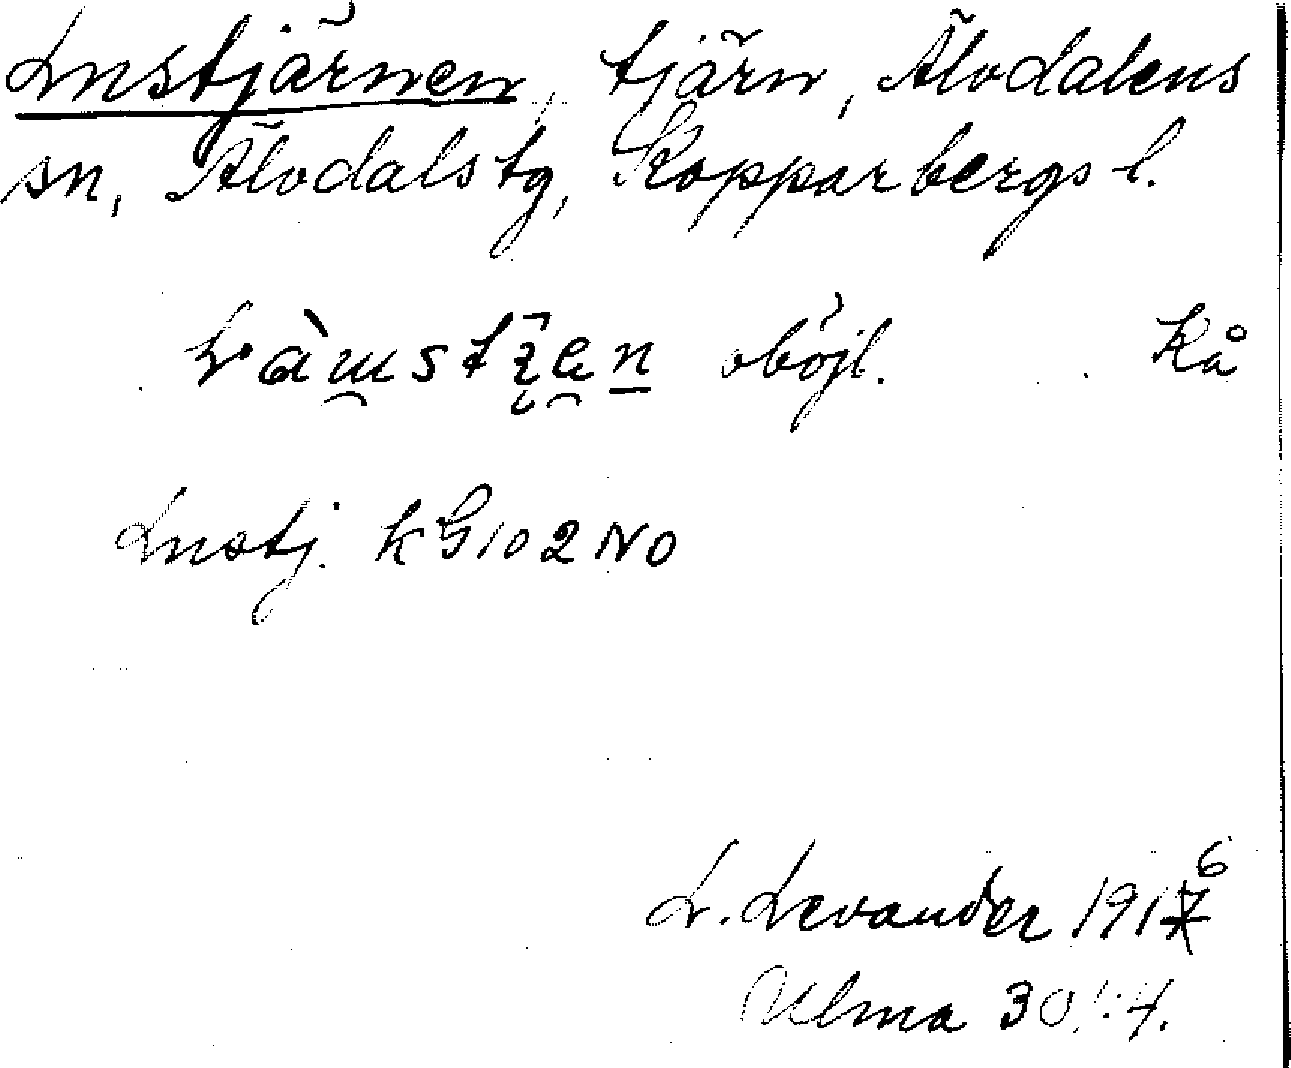 Lustjärnen, tjärn, Älvdalens
sn, Älvdals tg, Kopparbergs l.
oböjl. Kå
Lustj. kG102NO
L. Levander 1916
Ulma 301:4.